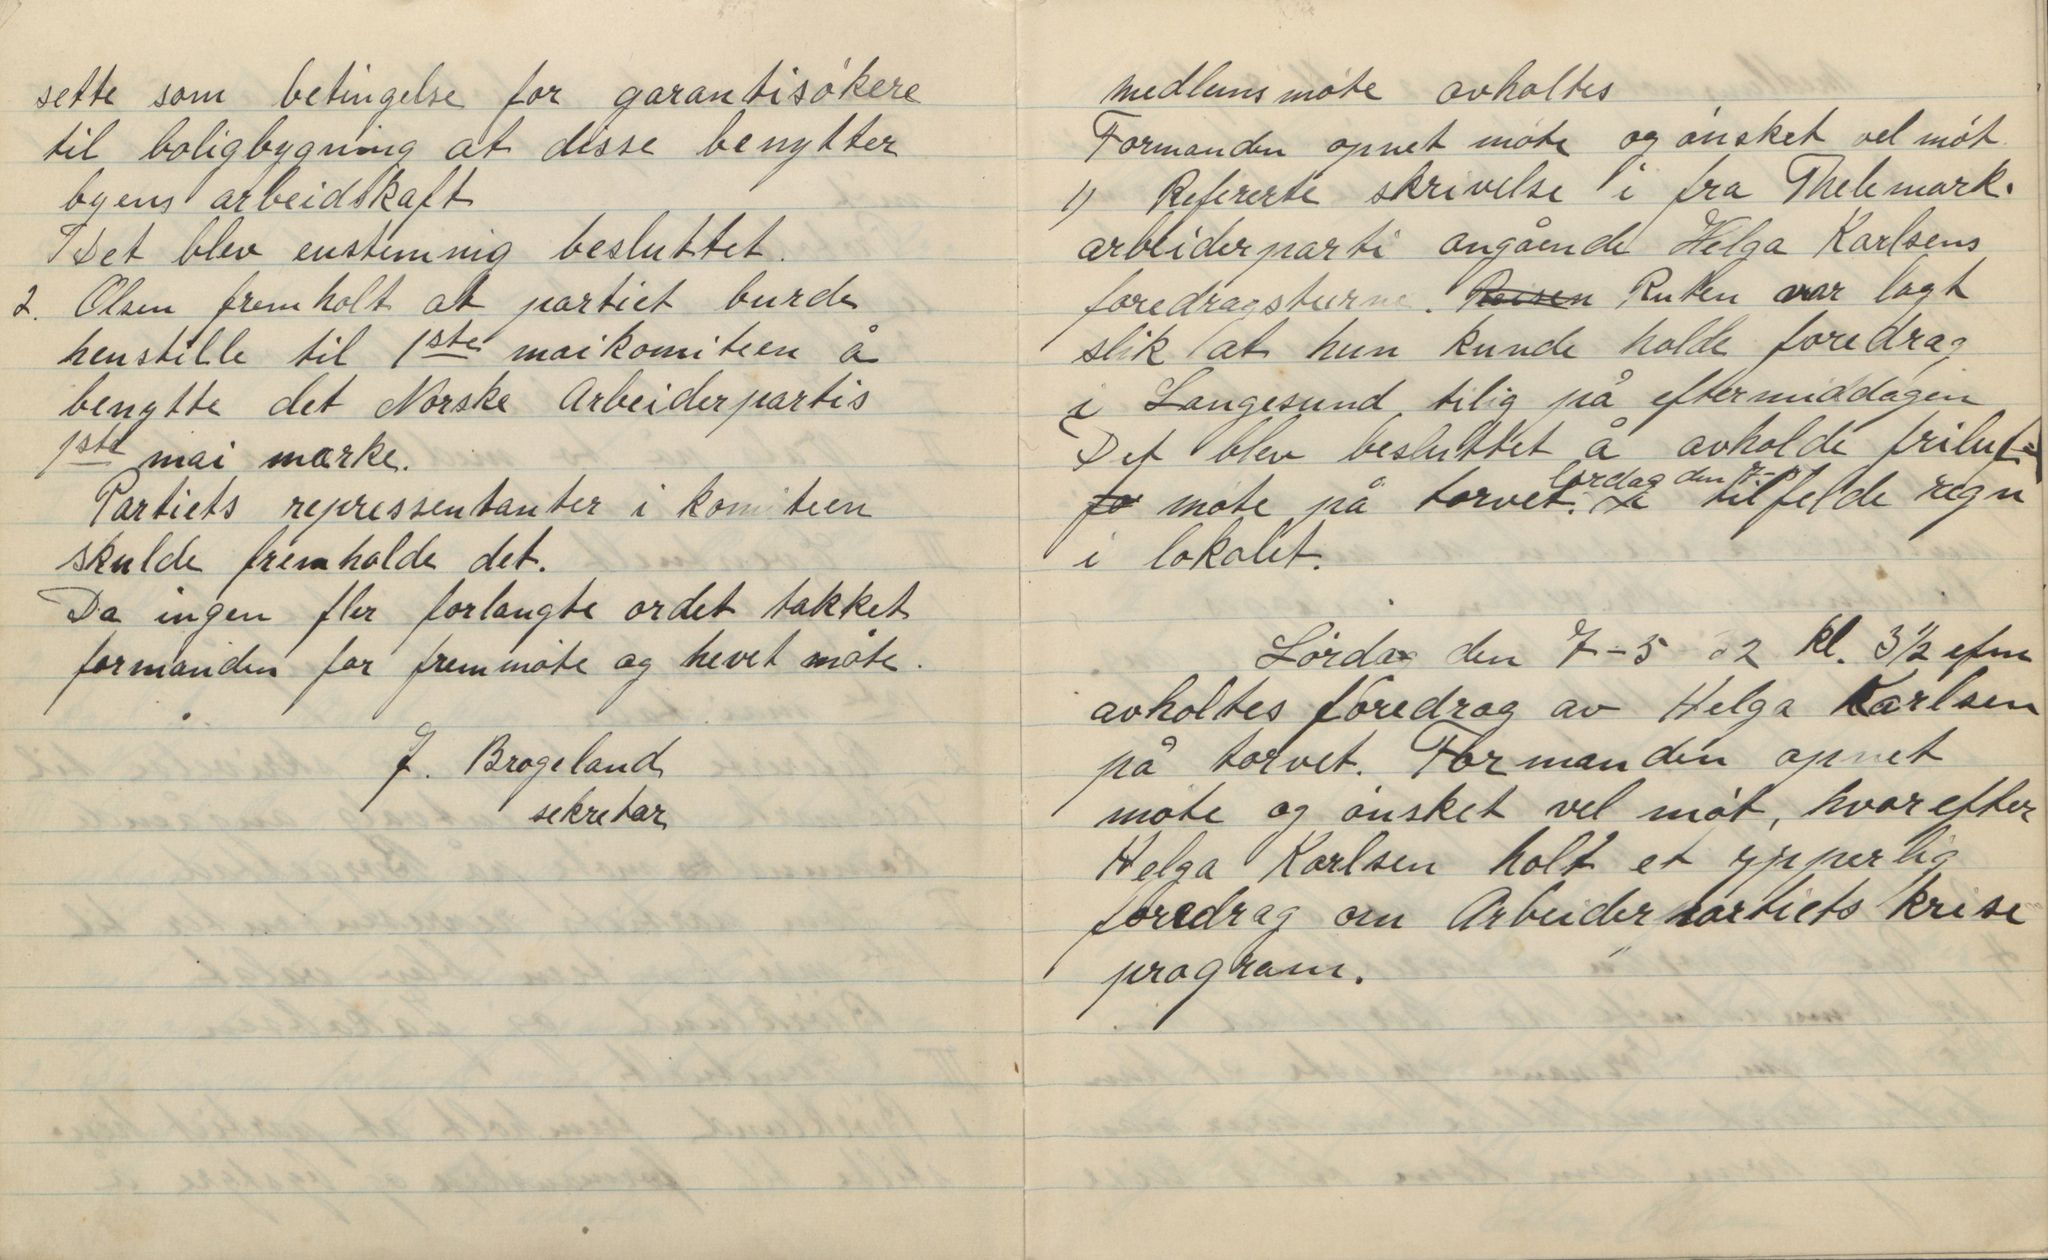 sette som betingelse for garantisökere
til boligbygning at disse benytter
byens arbeidskaft
Det blev enstemmig besluttet.
2. Olsen fremholt at partiet burde
henstille til 1ste maikomiteen å
benytte det Norske Arbeiderpartis
1ste mai merke.
Partiets repressentanter i komiteen
skulde fremholde det.
Da ingen fler forlangte ordet takket
formanden for fremmöte og hevet möte.
J. Brogeland
sekretær
medlemsmöte avholtes
Formanden opnet möte og önsket vel möt.
1) Refererte skrivelse i fra Thelemark.
arbeiderparti angående Helga Karlsens
foredragsturne. Reisen Ruten var lagt
slik at hun kunde holde foredrag
i Langesund tilig på eftermiddagen
Det blev besluttet å avholde friluf-
fo möte på torvet. lördag den 7-5 I tilfelde regn
i lokalet.
Lördag den 7-5 32 kl. 3 1/2 efm
avholtes foredrag av Helga Karlsen
på torvet. Formanden opnet
möte og önsket vel möt, hvorefter
Helga Karlsen holt et ypperlig
foredrag om Arbeiderpartiets krise
program.